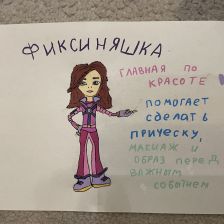 ФИКСИНЯШКА
ГЛАВНАЯ ПО
КРАСОТЕ
ПОМОГАЕТ
СДЕЛАТЬ
ПРИЧЕСКУ,
МАКИЯЖ И
ОБРАЗ ПЕРЕД
ВАЖНЫМ
СОБЫТИЕМ